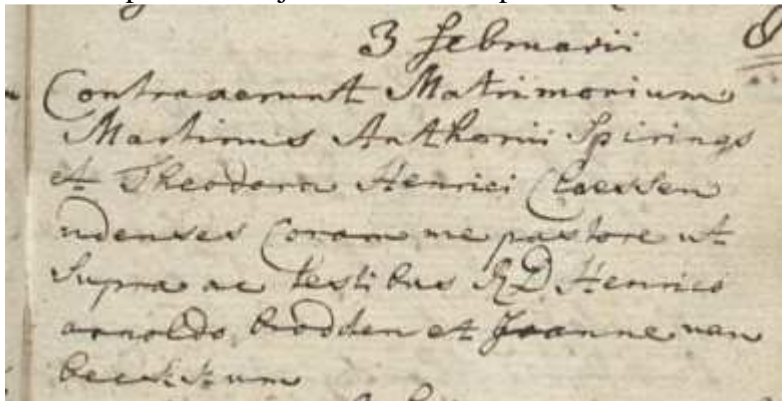 3 februarii
Contraxerunt Matrimonium
Martinus Anthonii Spirings
et Theodora Henrici Claessen
udenses Coram me pastore ut
Supra ac testibus R D Henrico
arnoldo brodden et Joanne van